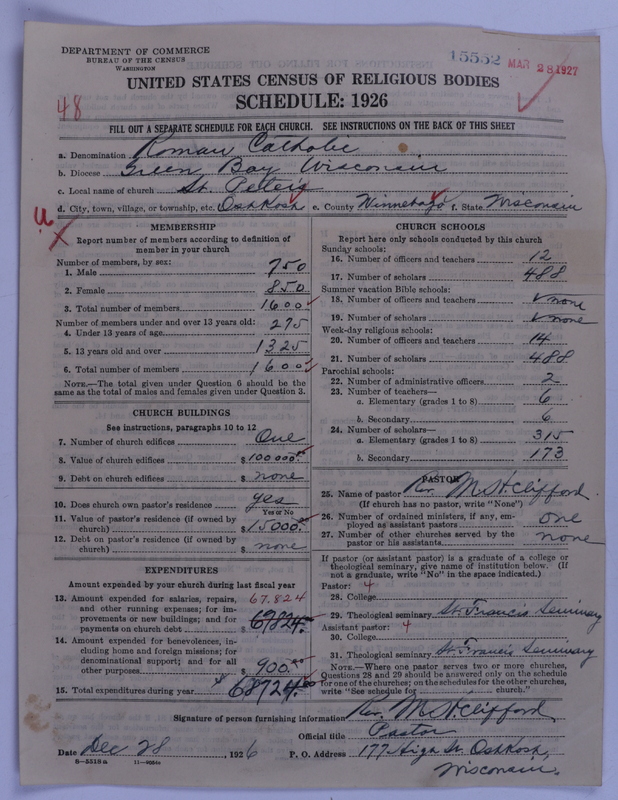 DEPARTMENT OF COMMERCE
BUREAU OF THE CENSUS
WASHINGTON
15552 MAR 28 1927
UNITED STATES CENSUS OF RELIGIOUS BODIES
SCHEDULE: 1926
48
FILL OUT A SEPARATE SCHEDULE FOR EACH CHURCH. SEE INSTRUCTIONS ON THE BACK OF THIS SHEET
a. Denomination Roman Catholic
b. Diocese Green Bay Wisconsin
c. Local name of church St. Petterś
d. City, town, village, or township, etc. Oshkosh e. County Winnebago f. State Wisconsin
MEMBERSHIP
Report number of members according to definition of
member in your church
Number of members, by sex:
1. Male 750
2. Female 850
3. Total number of members 1600
Number of members under and over 13 years old:
4. Under 13 years of age 275
5. 13 years old and over 1325
6. Total number of members 1600
NOTE.—The total given under Question 6 should be the
same as the total of males and females given under Question 3.
CHURCH BUILDINGS
See instructions, paragraphs 10 to 12
7. Number of church edifices One
8. Value of church edifices $ 100000.00
9. Debt on church edifices $ none
10. Does church own pastor's residence yes
Yes or No
11. Value of pastor's residence (if owned by
church) $ 15000.00
12. Debt on pastor's residence (if owned by
church) $ none
EXPENDITURES
Amount expended by your church during last fiscal year
13. Amount expended for salaries, repairs, 67.824
and other running expenses; for im-
provements or new buildings; and for
payments on church debt $ 69824.00
14. Amount expended for benevolences, in-
cluding home and foreign missions; for
denominational support; and for all
other purposes $ 900.00
15. Total expenditures during year $ 68724.00
CHURCH SCHOOLS
Report here only schools conducted by this church
Sunday schools:
16. Number of officers and teachers 12
17. Number of scholars 488
Summer vacation Bible schools:
18. Number of officers and teachers none
19. Number of scholars none
Week-day religious schools:
20. Number of officers and teachers 14
21. Number of scholars 488
Parochial schools:
22. Number of administrative officers 2
23. Number of teachers—
a. Elementary (grades 1 to 8) 6
b. Secondary 6
24. Number of scholars—
a. Elementary (grades 1 to 8) 315
b. Secondary 173
PASTOR
25. Name of pastor Rev. M. H. Clifford
(If church has no pastor, write "None")
26. Number of ordained ministers, if any, em-
ployed as assistant pastors one
27. Number of other churches served by the
pastor or his assistants none
If pastor (or assistant pastor) is a graduate of a college or
theological seminary, give name of institution below. (If
not a graduate, write "No" in the space indicated.)
Pastor: 4
28. College
29. Theological seminary St. Francis Seminary
Assistant pastor: 4
30. College
31. Theological seminary St. Francis Seminary
NOTE.—Where one pastor serves two or more churches,
Questions 28 and 29 should be answered only on the schedule
for one of the churches; on the schedules for the other churches,
write "See schedule for church."
Signature of person furnishing information Rev. M. H. Clifford
Official title Pastor
Date Dec 28, 1926 P. O. Address 177 High St. Oshkosh,
Wisconsin.
8—5518a 11—9084c